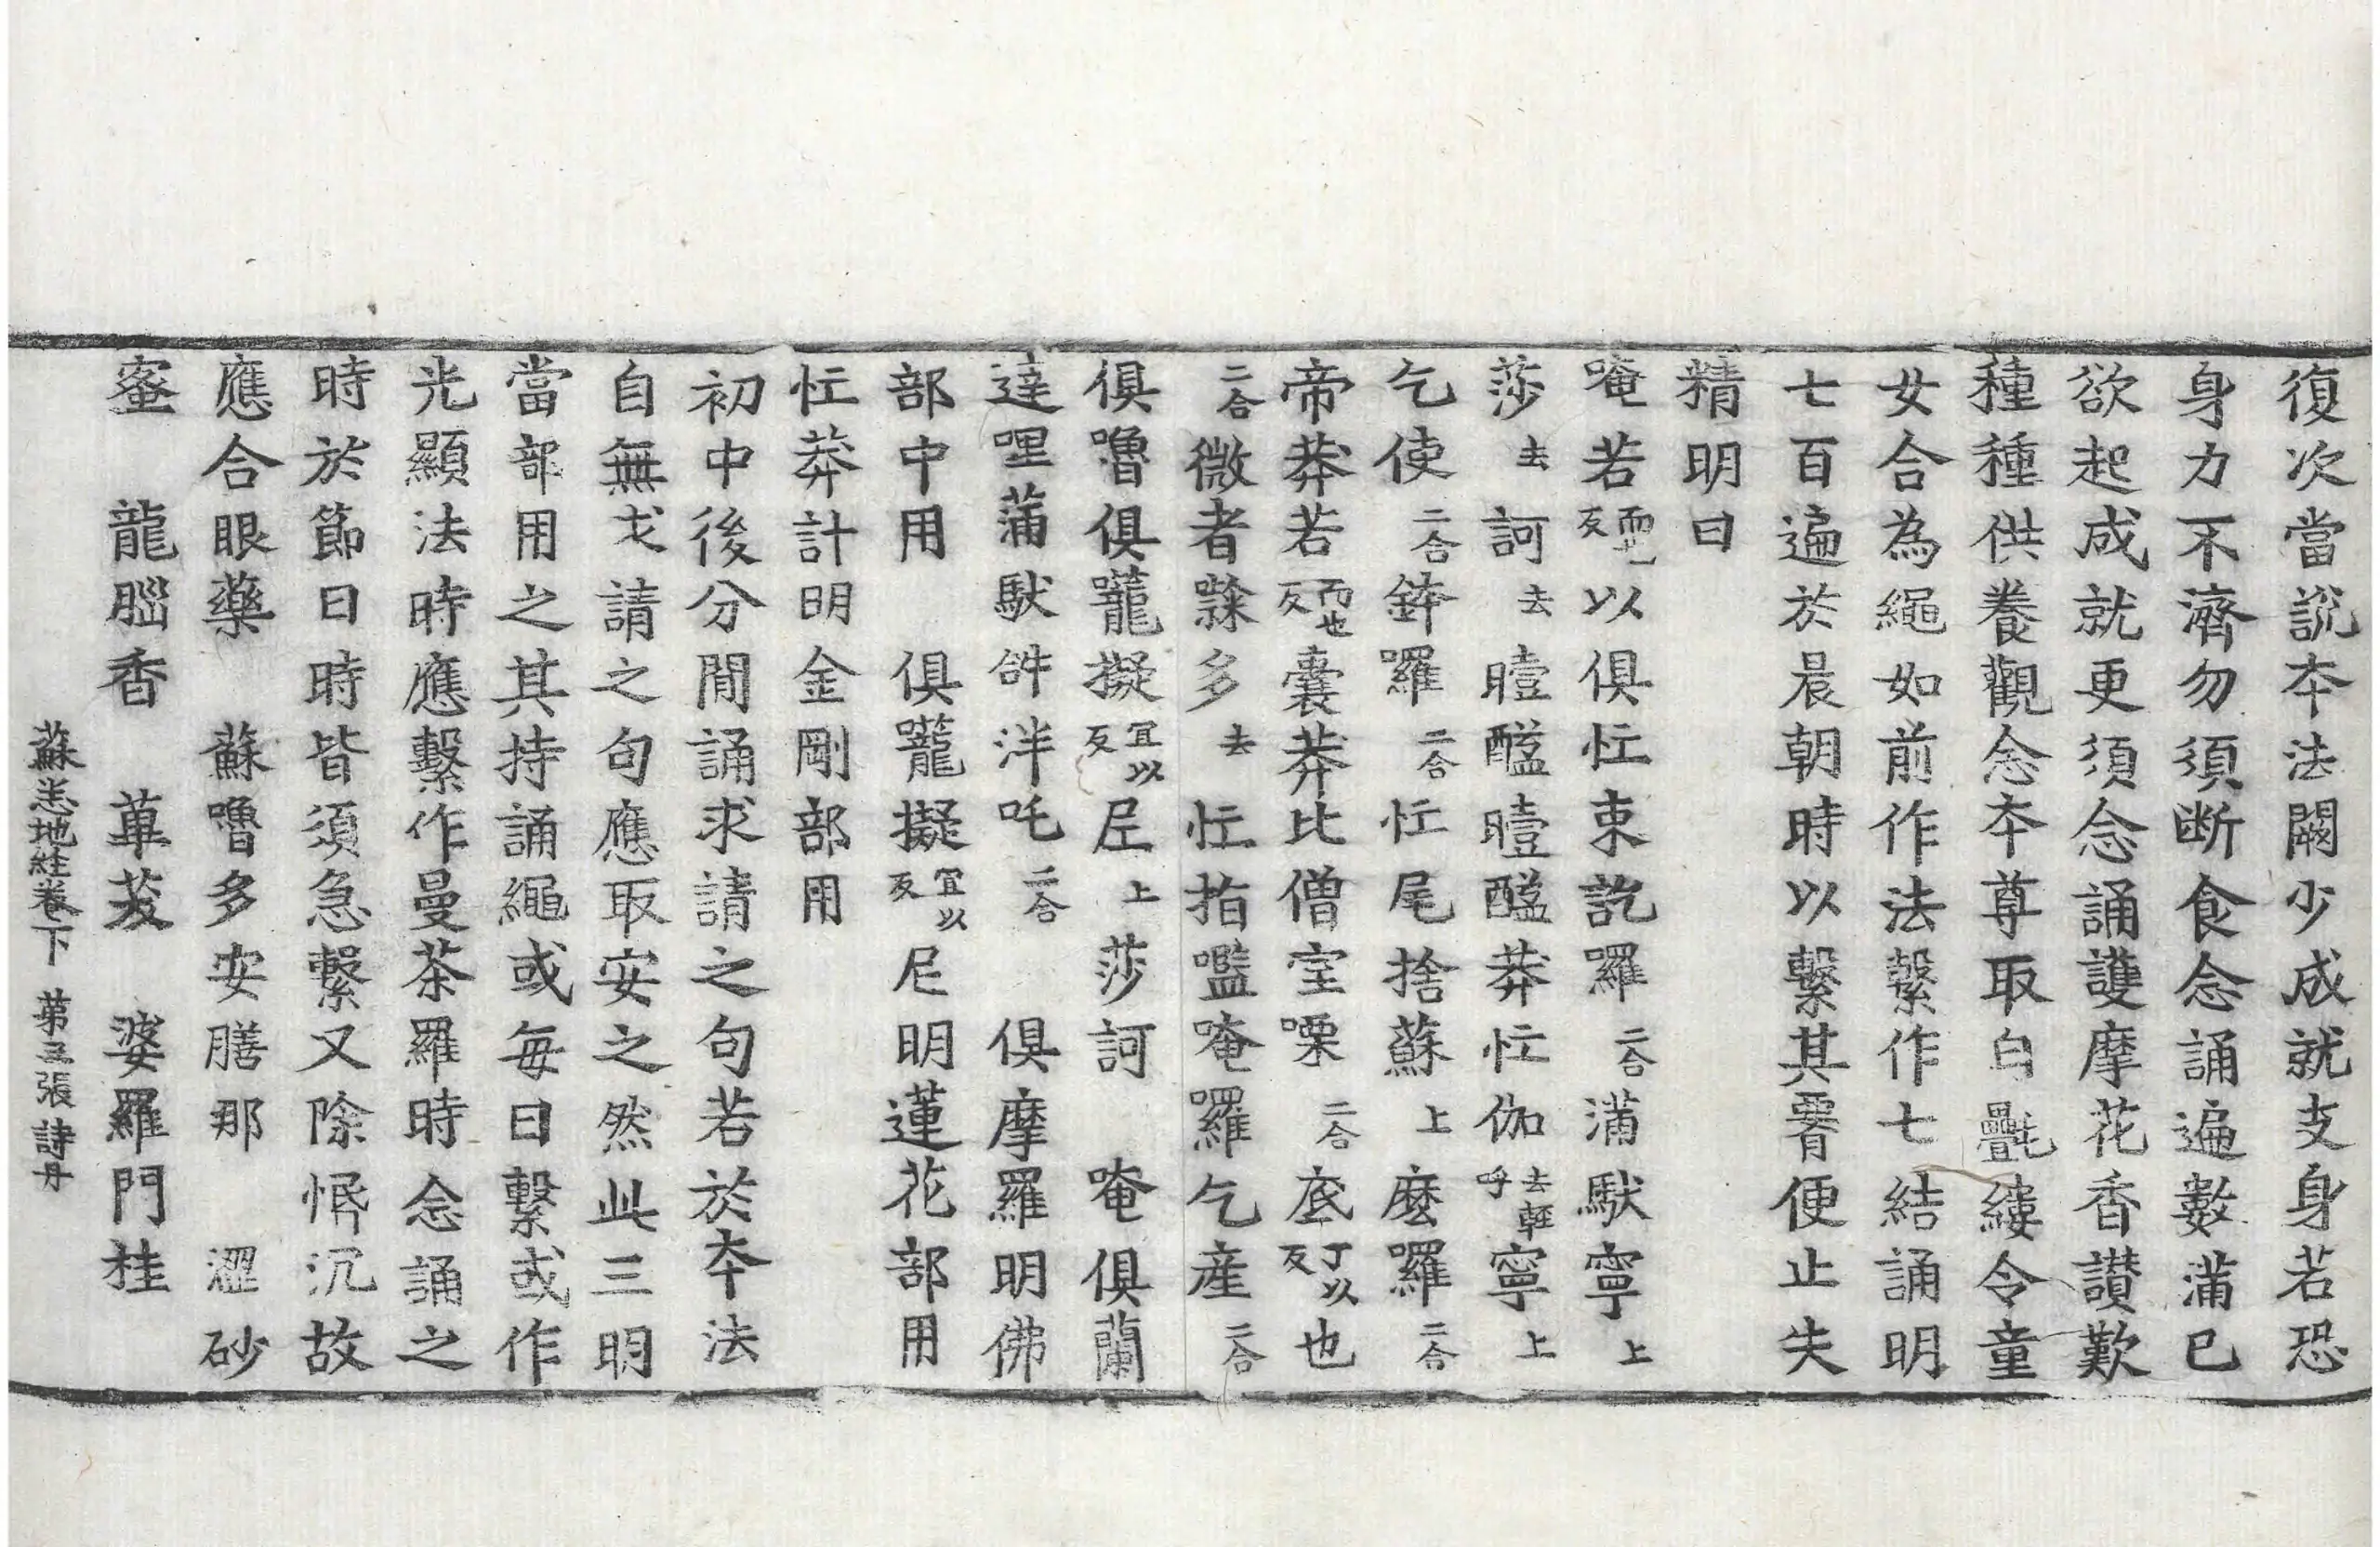 復次當說夲法闕少成就支身若恐
身力不濟勿須断食念誦遍數滿已
欲起成就更須念誦護摩花香讃歎
種種供養觀念夲尊取白㲲縷令童
女合為繩如前作法繫作七結誦明
七百遍於晨朝時以繫其𦝫便止失
精明曰
唵若而也反以俱忙束訖羅二合滿馱寧上
莎去訶去曀醯曀醯莽忙伽去輕呼寧上
乞使二合鉢囉二合忙尾捨蘇上麼囉二合
帝莽若而也反囊莽比僧室㗚二合底丁以反也
二合微者㗚多去忙指㘕唵囉乞產二合
俱嚕俱嚨擬冝以反𡰱上莎訶　唵俱蘭
達哩蒲馱𤙖泮吒二合　俱摩羅明佛
部中用　俱嚨擬冝以反尼明蓮花部用
忙莽計明金剛部用
初中後分閒誦求請之句若於夲法
自無㦯請之句應取安之然此三明
當部用之其持誦繩或每日繫或作
光顯法時應繫作曼荼羅時念誦之
時於節日時皆須急繫又除惛沉故
應合眼藥　蘇嚕多安膳那　澀砂
蜜　龍腦香　蓽茇　婆羅門桂
蘇悉地経卷下　苐三張　詩丹